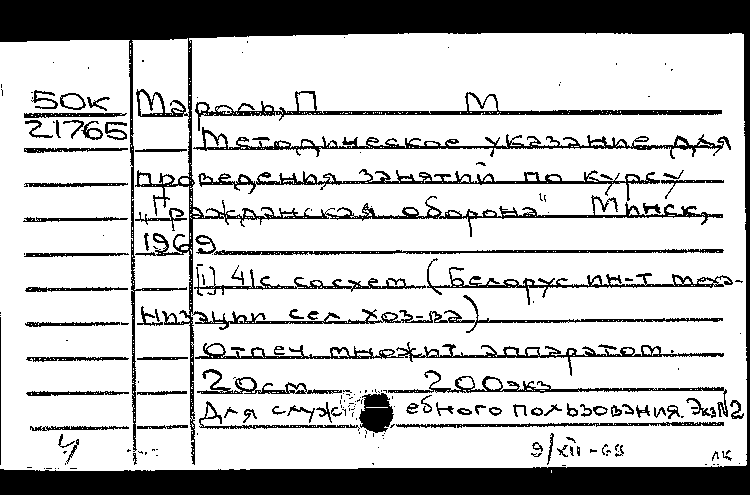 50к Мароль, П М
21765 Методическое указание для
проведения занятий по курсу
"Гражданская оборона" Минск,
1969
[1], 41с. со схем (Белорус ин-т меха-
низации сел. хоз-ва)
Отпеч. множит. аппаратом.
20см 200экз
Для служебного пользования. Экз№2
9/XII-69